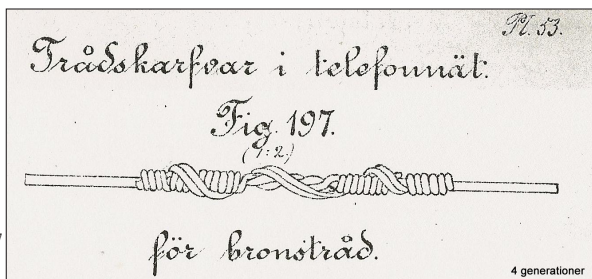 Pl. 53.
Trådskarfvar i telefonnät.
Fig. 197.
(1:2)
för bronstråd.
4 generationer